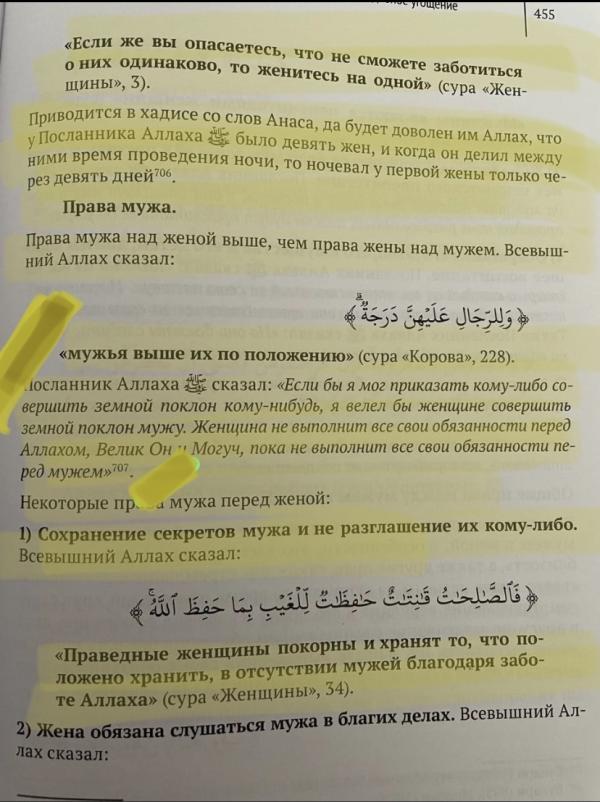 угощение
455
«Если же вы опасаетесь, что не сможете заботиться
о них одинаково, то женитесь на одной» (сура «Жен-
щины», 3).
Приводится в хадисе со слов Анаса, да будет доволен им Аллах, что
у Посланника Аллаха ﷺ было девять жен, и когда он делил между
ними время проведения ночи, то ночевал у первой жены только че-
рез девять дней⁷⁰⁶.
Права мужа.
Права мужа над женой выше, чем права жены над мужем. Всевыш-
ний Аллах сказал:
﴿وَلِلرِّجَالِ عَلَيْهِنَّ دَرَجَةٌ ۗ﴾
«мужья выше их по положению» (сура «Корова», 228).
Посланник Аллаха ﷺ сказал: «Если бы я мог приказать кому-либо со-
вершить земной поклон кому-нибудь, я велел бы женщине совершить
земной поклон мужу. Женщина не выполнит все свои обязанности перед
Аллахом, Велик Он и Могуч, пока не выполнит все свои обязанности пе-
ред мужем»⁷⁰⁷.
Некоторые права мужа перед женой:
1) Сохранение секретов мужа и не разглашение их кому-либо.
Всевышний Аллах сказал:
﴿فَٱلصَّٰلِحَٰتُ قَٰنِتَٰتٌ حَٰفِظَٰتٌ لِّلْغَيْبِ بِمَا حَفِظَ ٱللَّهُ ۚ﴾
«Праведные женщины покорны и хранят то, что по-
ложено хранить, в отсутствии мужей благодаря забо-
те Аллаха» (сура «Женщины», 34).
2) Жена обязана слушаться мужа в благих делах. Всевышний Ал-
лах сказал: